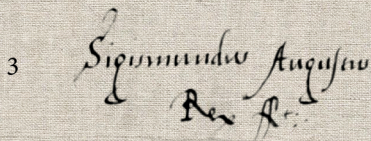 3
Sigismundus Augustus
Rex